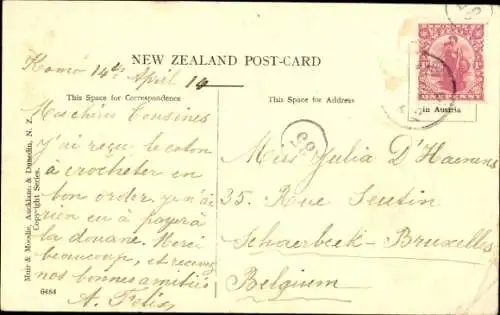 NEW ZEALAND POST-CARD
Kamo 14th April 14
This Space for Correspondence
Mes chères Cousines
J'ai reçu le coton
à crocheter en
bon order, je n'ai
rien eu à payer à
la douane. Merci
beaucoup, et recevez
nos bonnes amitiés
A. Felix
This Space for Address
in Austria
Miss Julia D'Haenens
35. Rue Seutin
Schaerbeek-Bruxelles
Belgium
Muir & Moodie, Auckland & Dunedin, N. Z.
Copyright Series.
6484